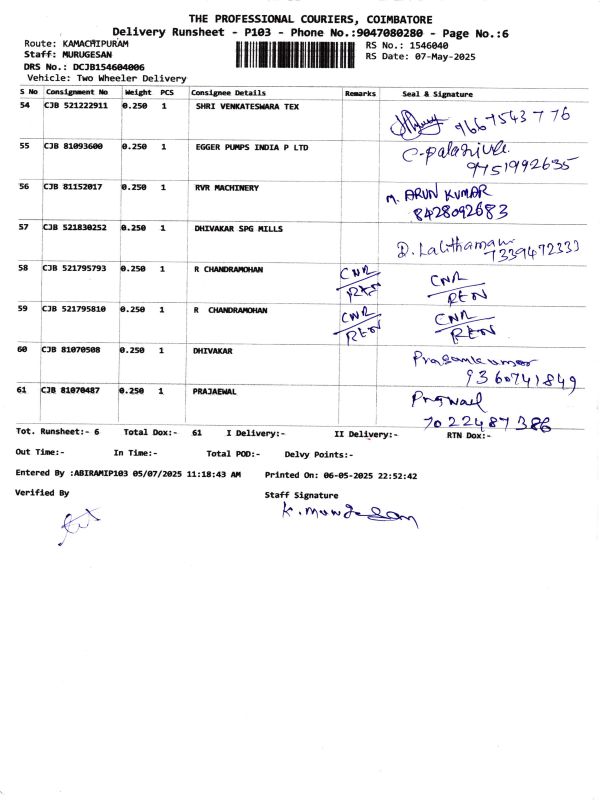 THE PROFESSIONAL COURIERS, COIMBATORE
Delivery Runsheet - P103 - Phone No.:9047080280 - Page No.:6
Route: KAMACHIPURAM RS No.: 1546040
Staff: MURUGESAN RS Date: 07-May-2025
DRS No.: DCJB154604006
Vehicle: Two Wheeler Delivery
S No Consignment No Weight PCS Consignee Details Remarks Seal & Signature
54 CJB 521222911 0.250 1 SHRI VENKATESWARA TEX
9667543776
55 CJB 81093600 0.250 1 EGGER PUMPS INDIA P LTD
9751992635
56 CJB 81152017 0.250 1 RVR MACHINERY M. ARUN KUMAR
8428092683
57 CJB 521830252 0.250 1 DHIVAKAR SPG MILLS
D. Lalithamani
7339472333
58 CJB 521795793 0.250 1 R CHANDRAMOHAN CNR CNR
59 CJB 521795810 0.250 1 R CHANDRAMOHAN CNR CNR
60 CJB 81070508 0.250 1 DHIVAKAR
9360741849
61 CJB 81070487 0.250 1 PRAJAEWAL
7022487386
Tot. Runsheet:- 6 Total Dox:- 61 I Delivery:- II Delivery:- RTN Dox:-
Out Time:- In Time:- Total POD:- Delvy Points:-
Entered By :ABIRAMIP103 05/07/2025 11:18:43 AM Printed On: 06-05-2025 22:52:42
Verified By Staff Signature